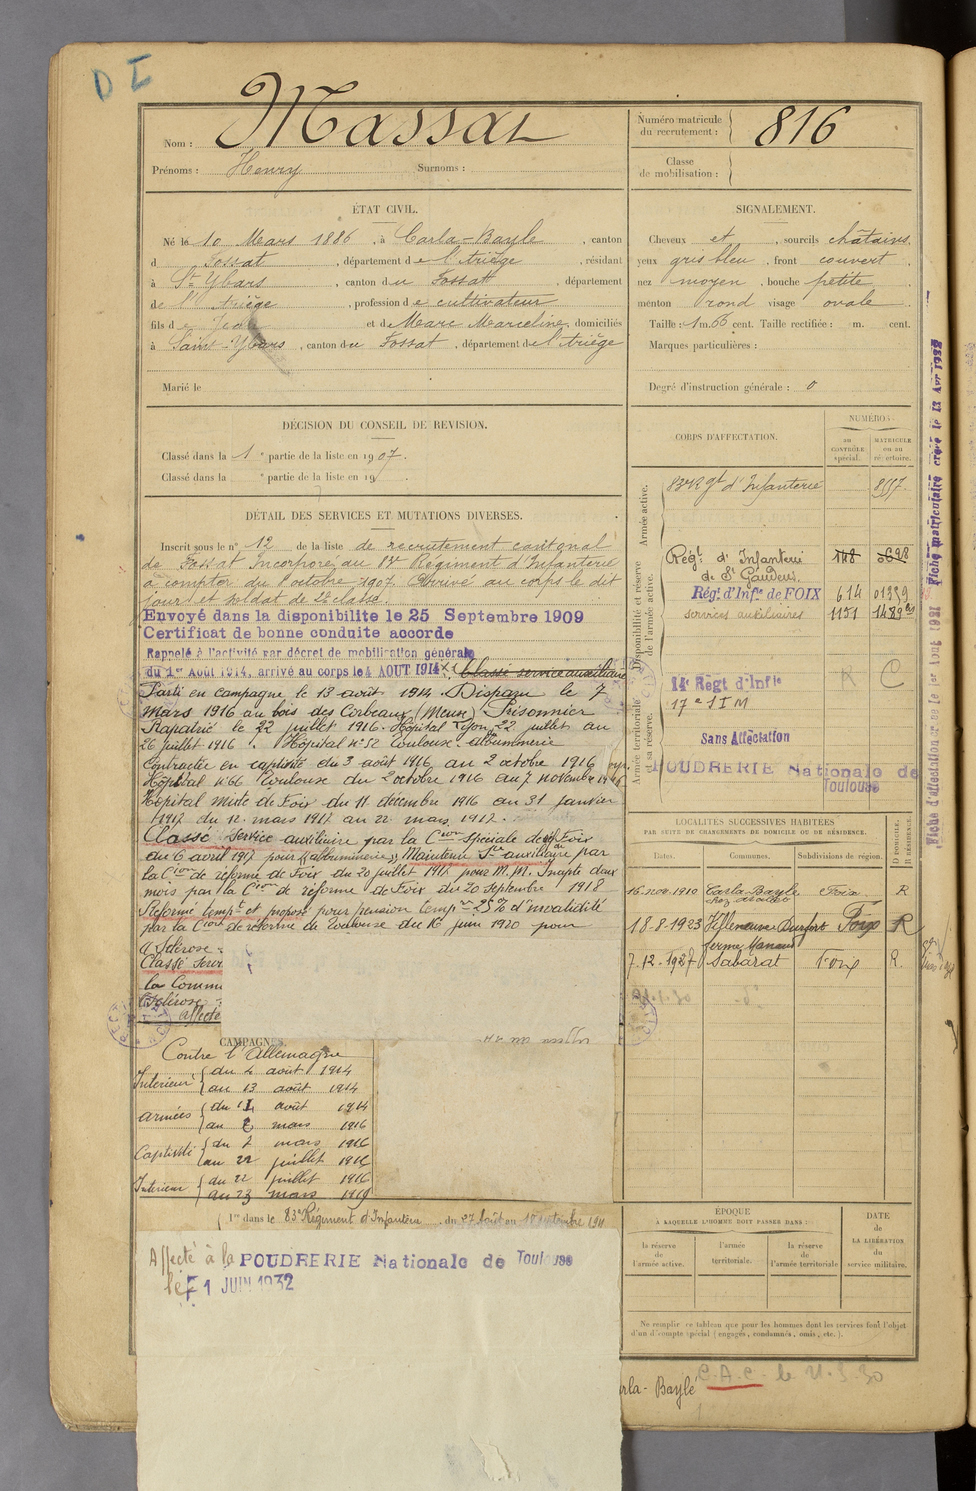 D I
Nom : Massat
Prénoms : Henry Surnoms :
Numéro matricule du recrutement : 816
Classe de mobilisation :
ÉTAT CIVIL.
Né le 10 Mars 1886, à Carla-Bayle, canton
d Fossat, département de l'Ariège, résidant
à St Ybars, canton du Fossat, département
de l'Ariège, profession de cultivateur
fils de Jean et de Marc Marceline, domiciliés
à Saint-Ybars, canton du Fossat, département de l'Ariège
Marié le
SIGNALEMENT.
Cheveux et, sourcils châtains.
yeux gris bleu, front couvert
nez moyen, bouche petite
menton rond visage ovale
Taille : 1 m. 66 cent. Taille rectifiée : m. cent.
Marques particulières :
Degré d'instruction générale : 0
DÉCISION DU CONSEIL DE REVISION.
Classé dans la 1e partie de la liste en 1907.
Classé dans la e partie de la liste en 19 .
DÉTAIL DES SERVICES ET MUTATIONS DIVERSES.
Inscrit sous le n° 12 de la liste de recrutement cantonal
de Fossat Incorporé au Régiment d'Infanterie
à compter du 8 octobre 1907. Arrivé au corps le dit
jour et soldat de 2e classe.
Envoyé dans la disponibilite le 25 Septembre 1909
Certificat de bonne conduite accorde
Rappelé à l'activité par décret de mobilisation générale
du 1er Août 1914, arrivé au corps le 4 AOUT 1914 Classé service auxiliaire
Parti en campagne le 13 août 1914. Disparu le 7
mars 1916 au bois des Corbeaux (Meuse) Prisonnier
Rapatrié le 22 juillet 1916. Hôpital Lyon 22 juillet au
26 juillet 1916. Hôpital n° 52 Toulouse. albuminerie
contractée en captivité du 3 août 1916 au 2 octobre 1916
Hôpital n° 66 Toulouse du 2 octobre 1916 au 7 novembre 1916
Hôpital mixte de Foix du 11 décembre 1916 au 31 janvier
1917 du 12 mars 1917 au 22 mars 1917.
Classé Service auxiliaire par la Cion Spéciale de Foix
du 6 avril 1917 pour "albuminerie" Maintenu Sce auxiliaire par
la Cion de réforme de Foix du 20 juillet 1917 pour M.M. Inapte deux
mois par la Cion de réforme de Foix du 20 Septembre 1918
Réformé tempt et proposé pour pension tempre 25% d'invalidité
par la Cion de réforme de Toulouse du juin 1920 pour
Sclérose
Classé Serv
la Comm
Sclérose
affecté
CORPS D'AFFECTATION.
NUMÉROS
au CONTRÔLE spécial.
MATRICULE ou au répertoire.
Armée active.
83e Rgt d'Infanterie 8557
Disponibilité et réserve de l'armée active.
Régt d'Infanterie de St Gaudens
Régt d'Infie de FOIX 614 01239
services auxiliaires 1151
Armée territoriale et sa réserve.
14e Régt d'Infie
17e S I M
Sans Affectation
POUDRERIE Nationale de Toulouse
R C
LOCALITÉS SUCCESSIVES HABITÉES
PAR SUITE DE CHANGEMENTS DE DOMICILE OU DE RÉSIDENCE.
Dates Communes. Subdivisions de région. D DOMICILE. R RÉSIDENCE.
16 nov. 1910 Carla-Bayle Foix R
18-8-1923 Villeneuve Durfort Foix R
ferme
7-12-1927 Sabarat Foix R.
CAMPAGNES.
Contre l'Allemagne
Intérieur du 4 août 1914
au 13 août 1914
Armées du 14 août 1914
au 7 mars 1916
Captivité du 7 mars 1916
au 22 juillet 1916
Intérieur du 22 juillet 1916
au 23 mars 1919
1re dans le 83e Régiment d'Infanterie, du 27 Août au
Affecté à la POUDRERIE Nationale de Toulouse
le 1 JUIN 1932
ÉPOQUE
À LAQUELLE L'HOMME DOIT PASSER DANS :
la réserve de l'armée active.
l'armée territoriale.
la réserve de l'armée territoriale
DATE de LA LIBÉRATION du service militaire.
Ne remplir ce tableau que pour les hommes dont les services font l'objet
d'un décompte spécial (engagés, condamnés, omis, etc.).
rla-Baylé
C.A.C.
Fiche matriculaire créée le 13 Avr 1932
Fiche d'affectation créée le 1er Aout 1931